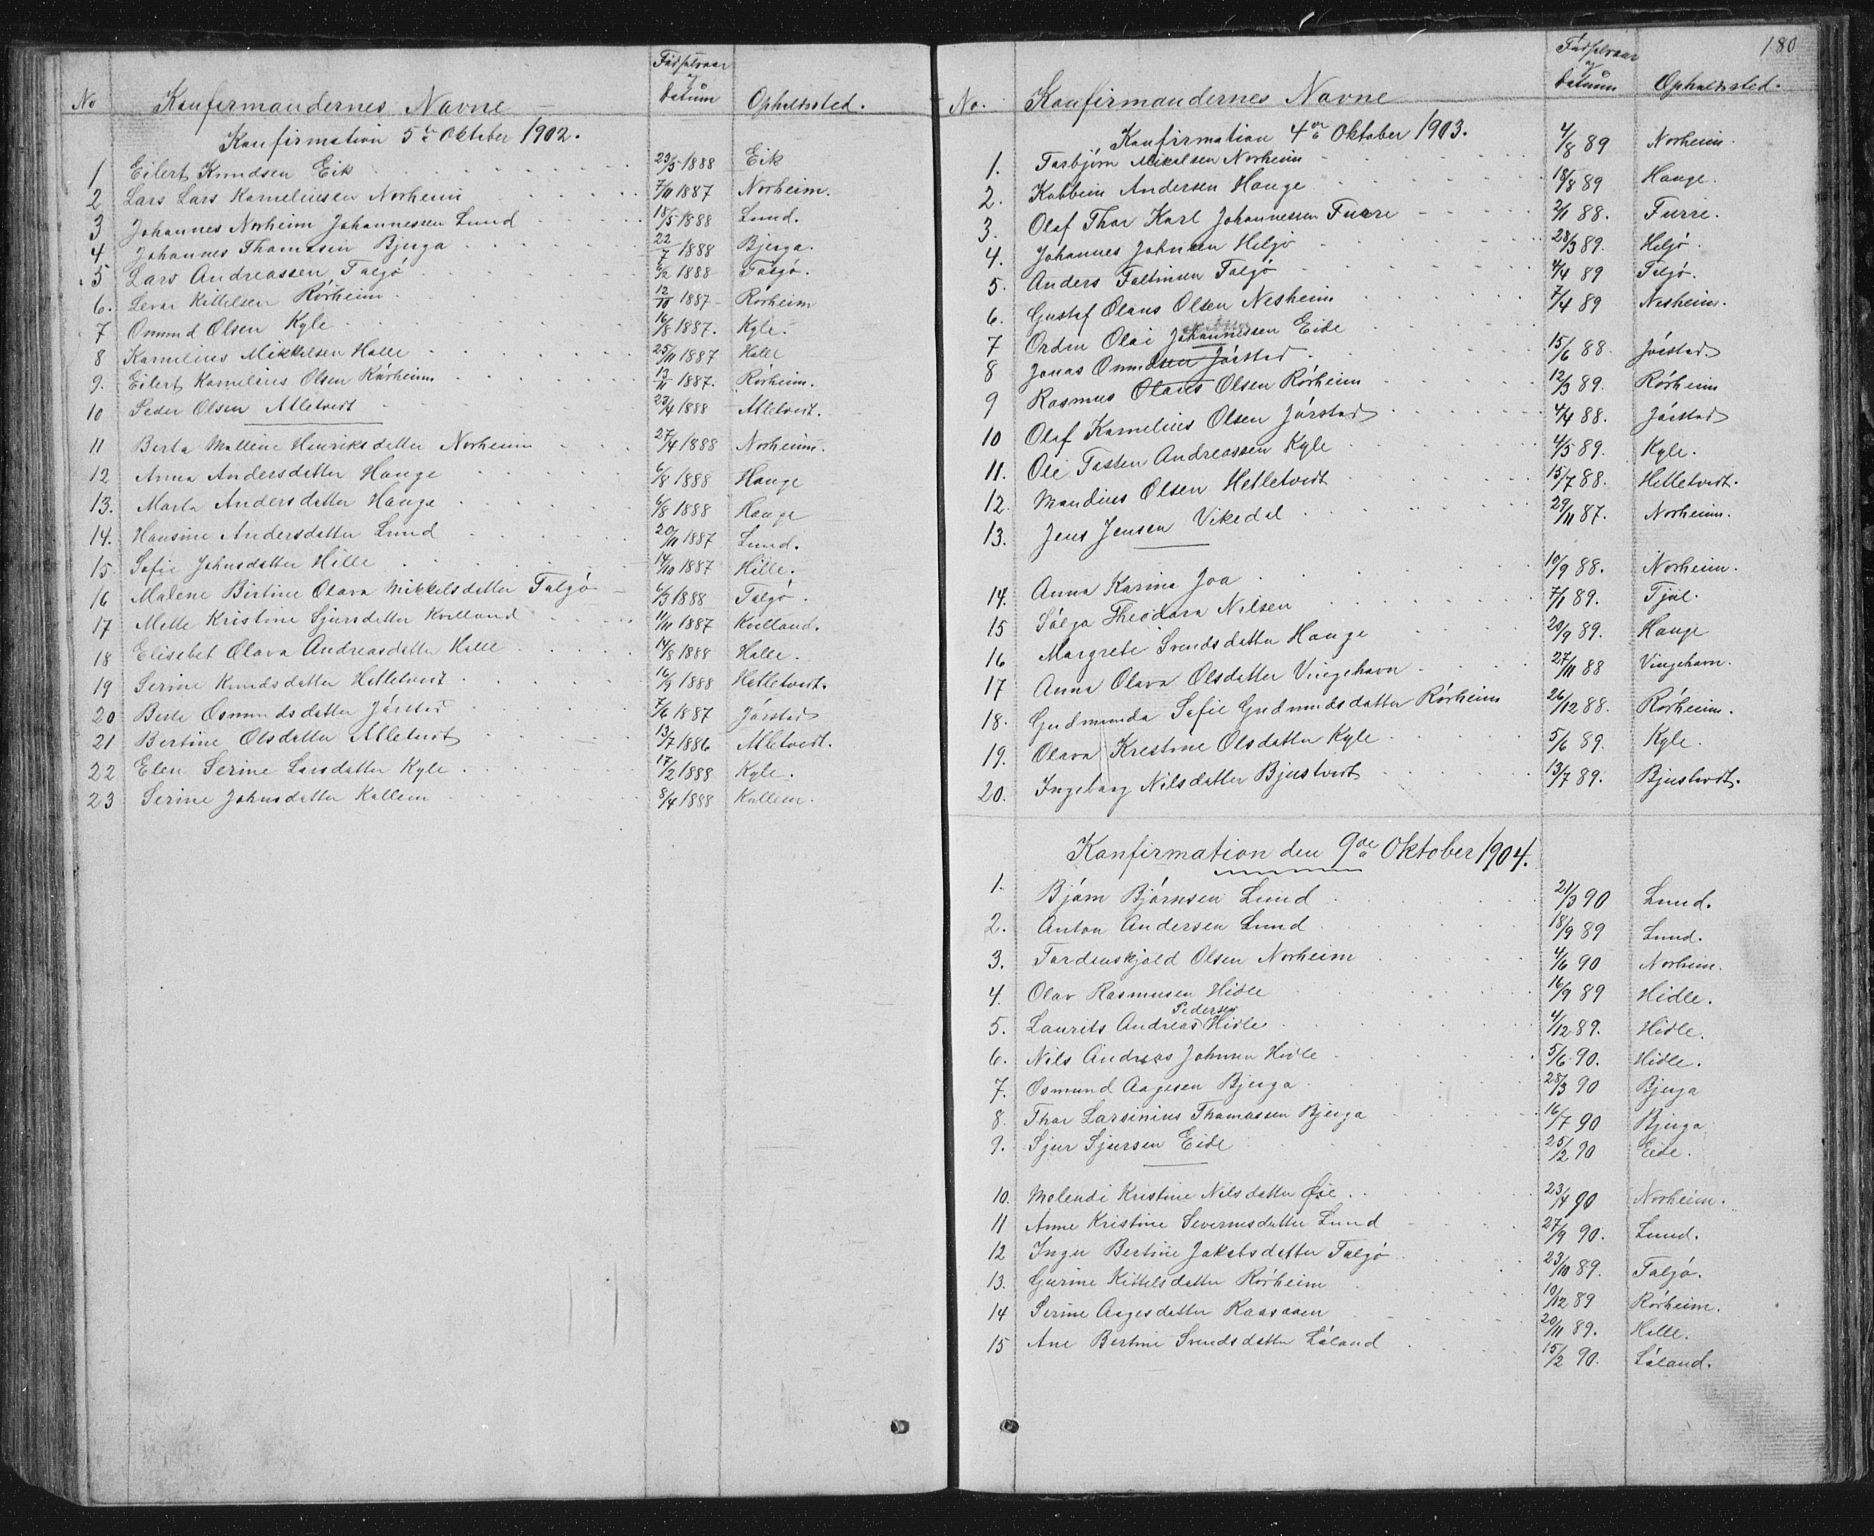 No Konfirmandernes Navne Fødselsaar og Datum Opholdssted.
Konfirmation 5te Oktober 1902.
1 Eilert Knudsen Eik 23/5 1888 Eik
2 Lars Lars Kornelinssen Norheim 7/11 1887 Norheim.
3 Johannes Norheim Johannessen Lund 18/5 1888 Lund.
4 Johannes Thomassen Bjerga 22/7 1888 Bjerga.
5 Lars Andreassen Talgø 1888 Talgø.
6. Kittelsen Rørheim 12/11 1887 Rørheim
7 Omund Olsen Kyle 16/8 1887. Kyle.
8 Kornelius Mikkelsen Halle 25/11 1887 Halle
9. Eilert Kornelius Olsen Rørheim 12/11 1887. Rørheim.
10 Peder Olsen Alletvedt 23/4 1888 Alletvedt.
11 Berta Malline Henriksdatter Norheim 27/4 1888 Norheim.
12 Anna Andersdatter Hauge 6/8 1888 Hauge
13. Marta Andersdatter Hauge 6/8 1888 Hauge
14. Hansine Andersdatter Lund 20/11 1887 Lund.
15 Sofie Johnsdatter Hille 14/10 1887 Hille.
16 Malene Birtine Olava Mikkelsdatter Talgø 6/3 1888 Talgø.
17 Mette Kristine Sjursdatter Kvilland 4/11 1887 Kvilland.
18 Elisebet Olava Andreasdatter Halle 14/8 1888 Halle.
19 Serine Knudsdatter Hetletvedt 16/3 1888 Hetletvedt.
20 Berte Osmundsdatter Jørstad 7/6 1887 Jørstad
21 Bertine Olsdatter Alletvedt 13/7 1886 Alletvedt.
22 Elen Serine Larsdatter Kyle 17/2 1888 Kyle.
23 Serine Johnsdatter Kallem 8/4 1888 Kallem.
180
No. Konfirmandernes Navne Fødselsaar og Datum Opholdssted.
Konfirmation 4de Oktober 1903.
1. Torbjørn Mikalsen Norheim 4/8 89 Norheim.
2. Kabbein Andersen Hauge 18/8 89 Hauge.
3. Olaf Thor Karl Johannessen Furre 2/11 88. Furre.
4. Johannes Johnsen Heljø 28/3 89. Heljø.
5. Anders Faltinsen Talgø 4/4 89 Talgø.
6. Gustaf Olaus Olsen Nesheim 7/4 89 Nesheim.
7 Ordin Olai Johannessen Eide
8 Jonas Omundsen Jørstad 15/6 88. Jørstad
9 Rasmus Olaus Olsen Rørheim 12/3 89. Rørheim
10 Olaf Kornelius Olsen Jørstad 4/4 88. Jørstad
11. Ole Tosten Andreassen Kyle 4/5 89. Kyle.
12. Mandius Olsen Hetletvedt 15/7 88. Hetletvedt.
13. Jens Jensen Vikedal 29/11 87. Norheim.
14. Anna Karina Joa 10/9 88. Norheim.
15 Sólga Theodora Nilsen 7/1 89. Tjul.
16 Margrete Svendsdatter Hauge 20/9 89. Hauge
17 Anna Olava Olsdatter Vingehavn 27/11 88 Vingehavn.
18. Gudmunda Sofie Gudmundsdatter Rørheim 26/12 88. Rørheim.
19. Olava Krestine Olsdatter Kyle 5/6 89. Kyle.
20. Ingeborg Nilsdatter Bjustvedt 13/7 89. Bjustvedt.
Konfirmation den 9de Oktober 1904.
1. Bjørn Bjørnsen Lund 21/3 90 Lund.
2. Anton Andersen Lund 18/9 89 Lund.
3. Tordenskjold Olsen Norheim 4/6 90 Norheim.
4. Olav Rasmusen Hidle 16/9 89 Hidle.
5. Laurits Andreas Pedersen Hidle 4/12 89. Hidle.
6. Nils Andreas Johnsen Hidle 5/6 90. Hidle.
7. Osmund Aagesen Bjerga 28/3 90 Bjerga
8. Thor Larsinius Thomassen Bjerga 16/7 90 Bjerga
9. Sjur Sjursen Eide 25/2 90 Eide.
10. Malendi Kristine Nilsdatter Øie 23/4 90 Norheim.
11 Anne Kristine Severinsdatter Lund 27/9 90. Lund.
12 Inger Bertine Jakobsdatter Talgø 23/10 89. Talgø.
13. Gurine Kittelsdatter Rørheim 10/12 89 Rørheim.
14 Serine Aagesdatter Raasaaen 20/11 89. Halle.
15 Ane Bertine Svendsdatter Løland 15/2 90. Løland.